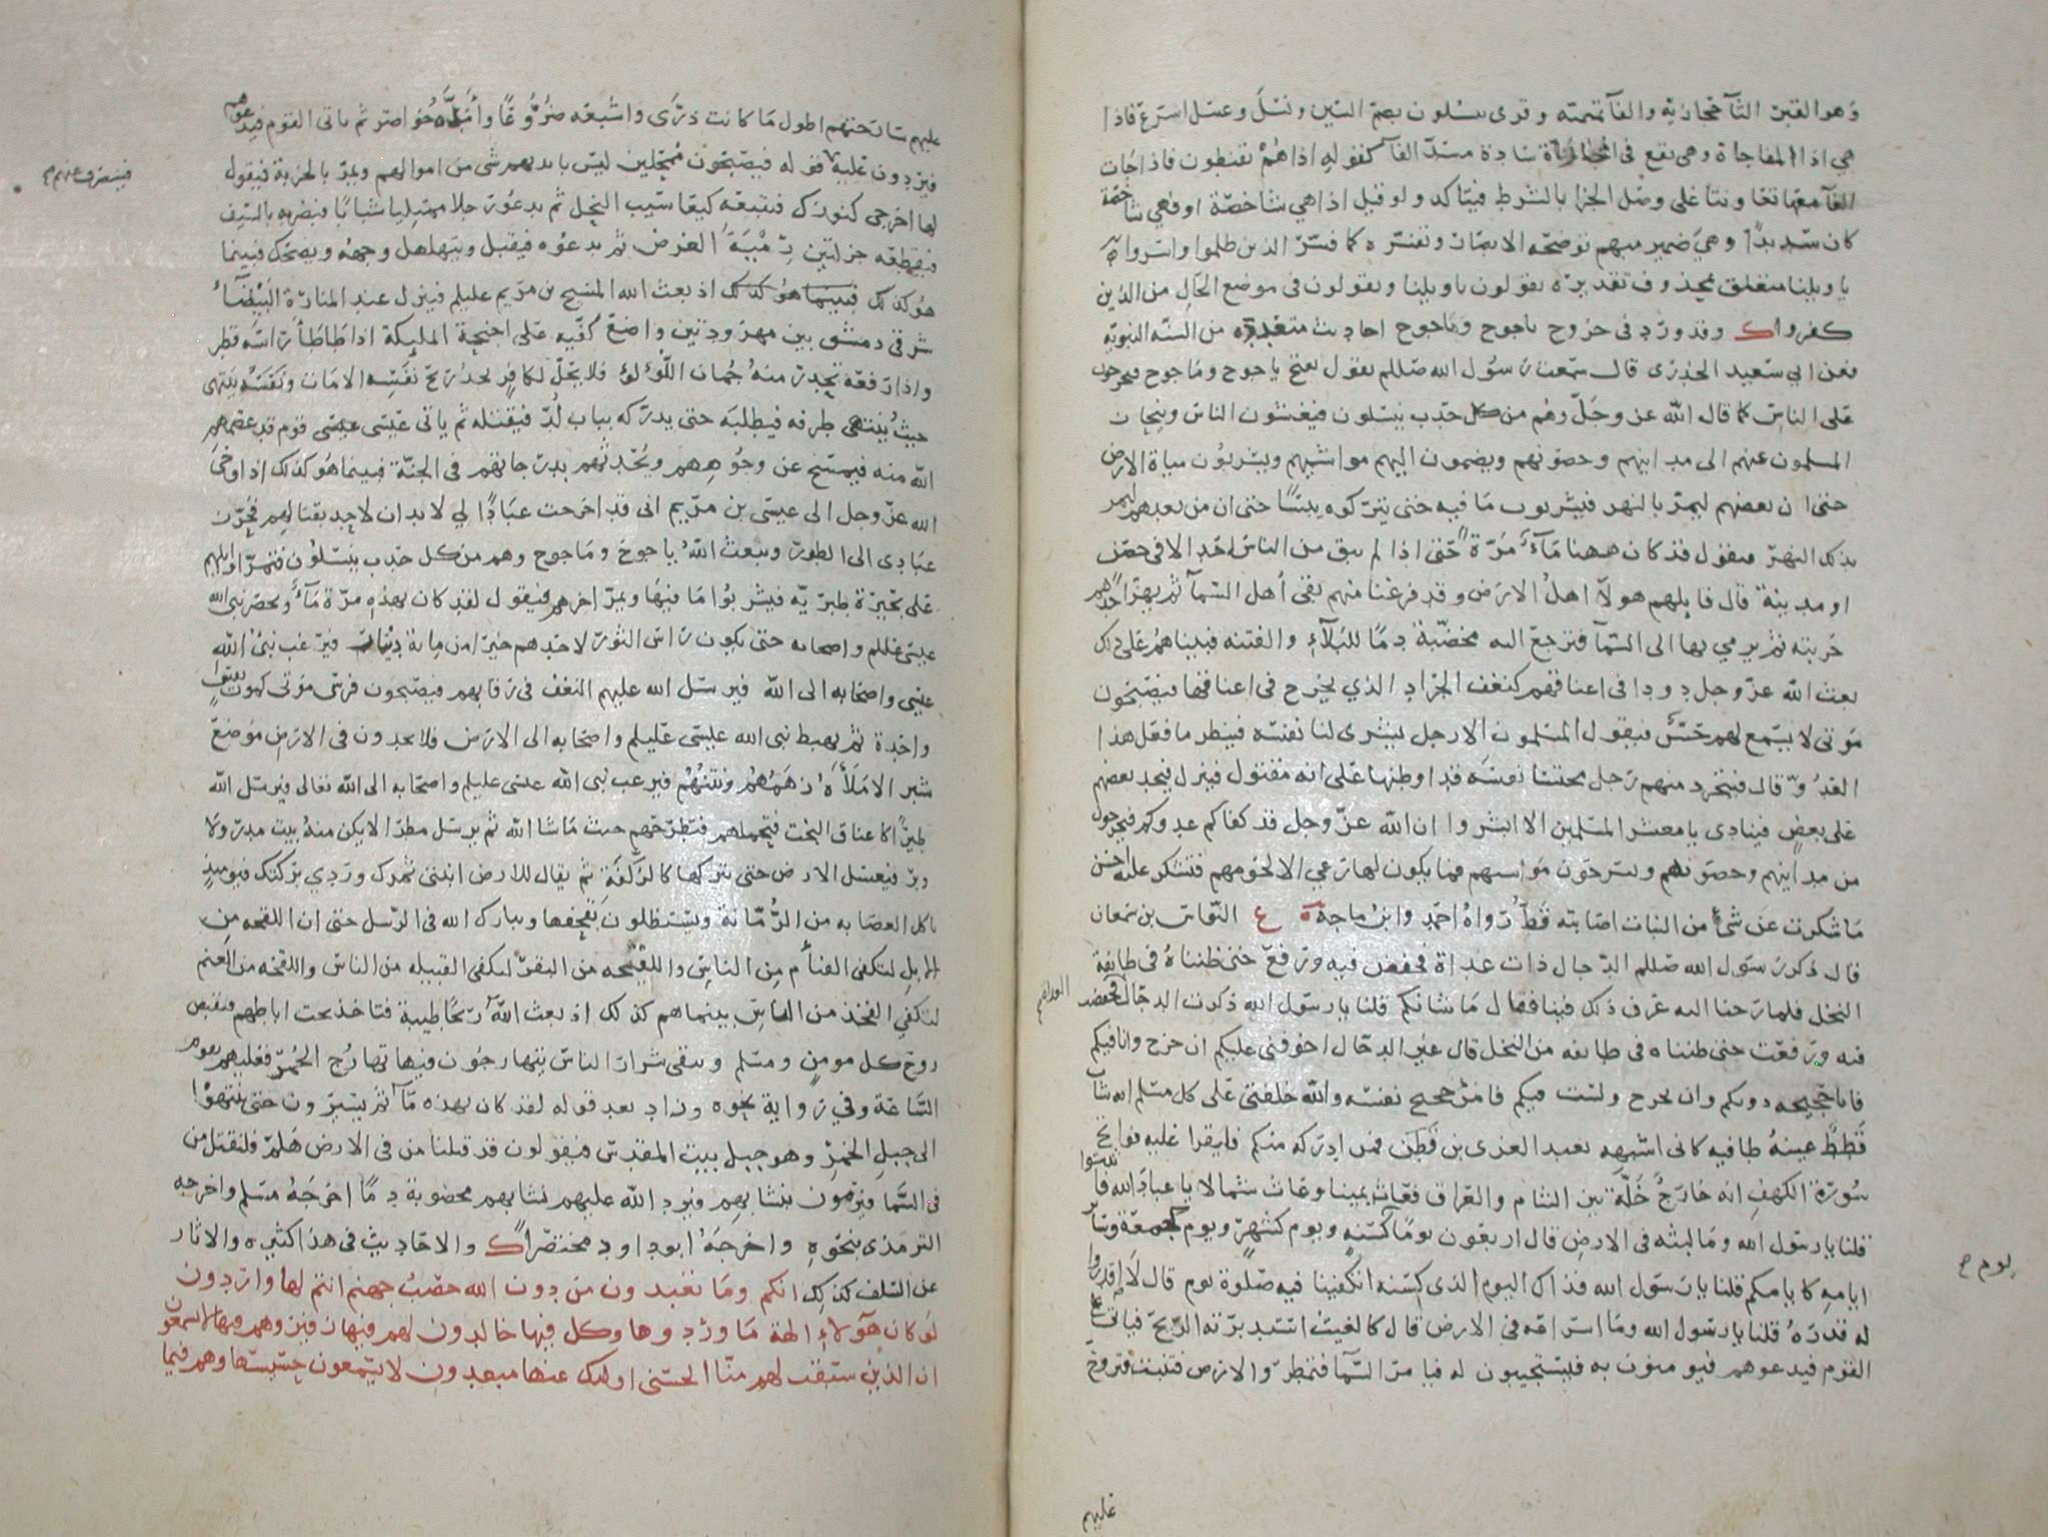 وهو القبر الثآ حجازية والفآ تميمته وقرى ينسلون بضم السين ونسل وعسل اسرع فاذا
هي اذا المفاجاة وهي تقع في المجازاة سادة مسد الفآ كقوله اذا هم يقنطون فاذا جات
الفآ معها تعاونتا على وصل الجزا بالشرط فيتاكد ولو قيل اذا هي شاخصة او فهي شاخصة
كان سديدا وهي ضمير مبهم توضحه الابصار وتفسره كما فسر الذين ظلموا واسروا
يا ويلنا متعلق بمحذوف تقديره يقولون يا ويلنا ويقولون في موضع الحال من الذين
كفروا ك وقد ورد في خروج ياجوج وماجوج احاديث متعددة من السنه النبوية
فعن ابي سعيد الخدرى قال سمعت رسول الله صللم يقول يفتح ياجوج وماجوج فيخرجون
على الناس كما قال الله عز وجل وهم من كل حدب ينسلون فيغشون الناس وينحاز
المسلمون عنهم الى مداينهم وحصونهم ويضمون اليهم مواشيهم ويشربون مياة الارض
حتى ان بعضهم ليمر بالنهر فيشربون ما فيه حتى يتركوه يبسا حتى ان من بعدهم ليمر
بذلك النهر فيقول قد كان ههنا مآء مرة حتى اذا لم يبق من الناس احد الا في حصن
او مدينة قال قايلهم هولآ اهل الارض وقد فرغنا منهم بقى أهل السمآ ثم يهز احدهم
حربته ثم يرمي بها الى السمآ فترجع اليه مخضبة دما للبلآء والفتنه فبينا هم على ذلك
بعث الله عز وجل دودا في اعناقهم كنغف الجراد الذي يخرج في اعناقها فيصبحون
موتى لا يسمع لهم حسٌ فيقول المسلمون الا رجل يشرى لنا نفسه فينظر ما فعل هذا
العدو قال فيتجرد منهم رجل محتسبا نفسه قد اوطنها على انه مقتول فينزل فيجد بعضهم
على بعض فينادى يا معشر المسلمين الا ابشروا ان الله عز وجل قد كفاكم عدوكم فيخرجون
من مداينهم وحصونهم ويسرحون مواشيهم فما يكون لها رعي الا لحومهم فتشكر عليه احسن
ما شكرت عن شئ من النبات اصابته قط رواه احمد وابن ماجة ع النواس بن سمعان
قال ذكر رسول الله صللم الدجال ذات غداة فخفض فيه ورفع حتى ظنناه في طايفة
النخل فلما رحنا اليه عرف ذلك فينا فقال ما شانكم قلنا يا رسول الله ذكرت الدجال فخفضت
الغداة م
فيه ورفعت حتى ظنناه في طايفه من النخل قال غير الدجال اخوفني عليكم ان خرج وانا فيكم
فانا حجيجه دونكم وان يخرج ولست فيكم فامرؤ حجيج نفسه والله خلفتي على كل مسلم انه شاب
قطط عينه طافيه كانى اشبهه بعبد العزى بن قطن فمن ادركه منكم فليقرا عليه فواتح
سورة الكهف انه خارج خلة بين الشام والعراق فعاث يمينا وعاث شمالا يا عباد الله فاثبتوا
قلنا يا رسول الله وما لبثه في الارض قال اربعون يوما كسنه ويوم كشهر ويوم كجمعة وساير
يوم م
ايامه كايامكم قلنا يا رسول الله فذاك اليوم الذى كسنه اتكفينا فيه صلوة يوم قال لا اقدروا
له قدره قلنا يا رسول الله وما اسراعه في الارض قال كالغيث استدبرته الريح فياتي على
القوم فيدعوهم فيومنون به فيستجيبون له فيامر السمآ فتمطر والارض فتنبت فتروح
عليهم
عليهم سارحتهم اطول ما كانت درى واشبعه ضروعا وامده خواصر ثم ياتى القوم فيدعوهم
فيردون عليه قوله فيصبحون ممحلين ليس بايديهم شى من اموالهم ويمر بالخربة فيقول
فينصرف عنهم م
لها اخرجي كنوزك فتتبعه كيعاسيب النحل ثم يدعو رجلا ممتليا شبابا فيضربه بالسيف
فيقطعه جزلتين رمية الغرض ثم يدعوه فيقبل ويتهلهل وجهه ويضحك فبينما
هو كذلك فبينما هو كذلك اذ بعث الله المسيح بن مريم عليلم فينزل عند المنارة البيضآء
شرقى دمشق بين مهرودتين واضع كفيه على اجنحة المليكة اذا طاطأ راسه قطر
واذا رفعه تحدر منه جمان اللؤلؤ فلا يحل لكافر يجد ريح نفسه الا مات ونفسه ينتهى
حيث ينتهي طرفه فيطلبه حتى يدركه بباب لد فيقتله ثم ياتى عيسى عيسى قوم قد عصمهم
الله منه فيمسح عن وجوههم ويحدثهم بدرجاتهم في الجنة فبينما هو كذلك اذ اوحى
الله عز وجل الى عيسى بن مريم انى قد اخرجت عبادا لي لا يدان لاحد بقتالهم فحرز
عبادى الى الطور ويبعث الله ياجوج وماجوج وهم من كل حدب ينسلون فتمر اوايلهم
على بحيرة طبرية فيشربوا ما فيها ويمر اخرهم فيقول لقد كان بهذه مرة مآء ويحصر نبى الله
عيسى عللم واصحابه حتى يكون راس الثور لاحدهم خيرا من ماية دينار فيرغب نبى الله
عيسى واصحابه الى الله فيرسل الله عليهم النغف في رقابهم فيصبحون فرسى موتى كموت نفس
واحدة ثم يهبط نبى الله عيسى عليلم واصحابه الى الارض فلا يجدون في الارض موضع
شبر الا ملأه زهمهم ونتنهم فيرغب نبى الله عيسى عليلم واصحابه الى الله تعالى فيرسل الله
طيرا كاعناق البخت فتحملهم فتطرحهم حيث ما شا الله ثم يرسل مطرا لا يكن منه بيت مدر ولا
وبر فيغسل الارض حتى يتركها كالزلفة ثم يقال للارض انبتى ثمرك وردي بركتك فيوميذ
تاكل العصابه من الرمانة ويستظلون بقحفها ويبارك الله في الرسل حتى ان اللقحه من
الابل لتكفى الفئام من الناس واللقحه من البقر لتكفى القبيله من الناس واللقحه من الغنم
لتكفي الفخذ من الناس بينما هم كذلك اذ بعث الله ريحا طيبة فتاخذ تحت اباطهم فتقبض
روح كل مومن ومسلم ويبقى شرار الناس يتهارجون فيها تهارج الحمر فعليهم تقوم
الساعة وفي رواية نحوه وزاد بعد قوله لقد كان بهذه مآ ثم يسيرون حتى ينتهوا
الى جبل الخمر وهو جبل بيت المقدس فيقولون قد قتلنا من في الارض هلم فلنقتل من
في السما فيرمون بنشابهم فيرد الله عليهم نشابهم مخضوبة دما اخرجه مسلم واخرجه
الترمذى بنحوه واخرجه ابو داود مختصرا ك والاحاديث في هذا كثيره والاثار
عن السلف كذلك انكم وما تعبدون من دون الله حصب جهنم انتم لها واردون
لو كان هولاء الهة ما وردوها وكل فيها خالدون لهم فيها زفير وهم فيها لا يسمعون
ان الذين سبقت لهم منا الحسنى اوليك عنها مبعدون لا يسمعون حسيسها وهم فيما